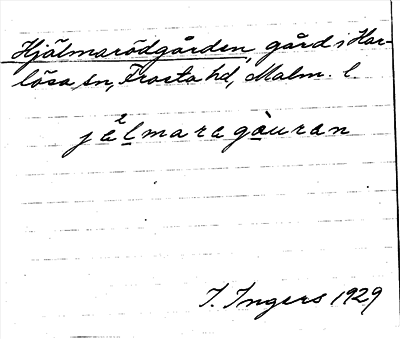 Hjälmarödgården, gård i Har-
lösa sn, Frosta hd, Malm. l.
jä²lmaragàuran
I. Ingers 1929